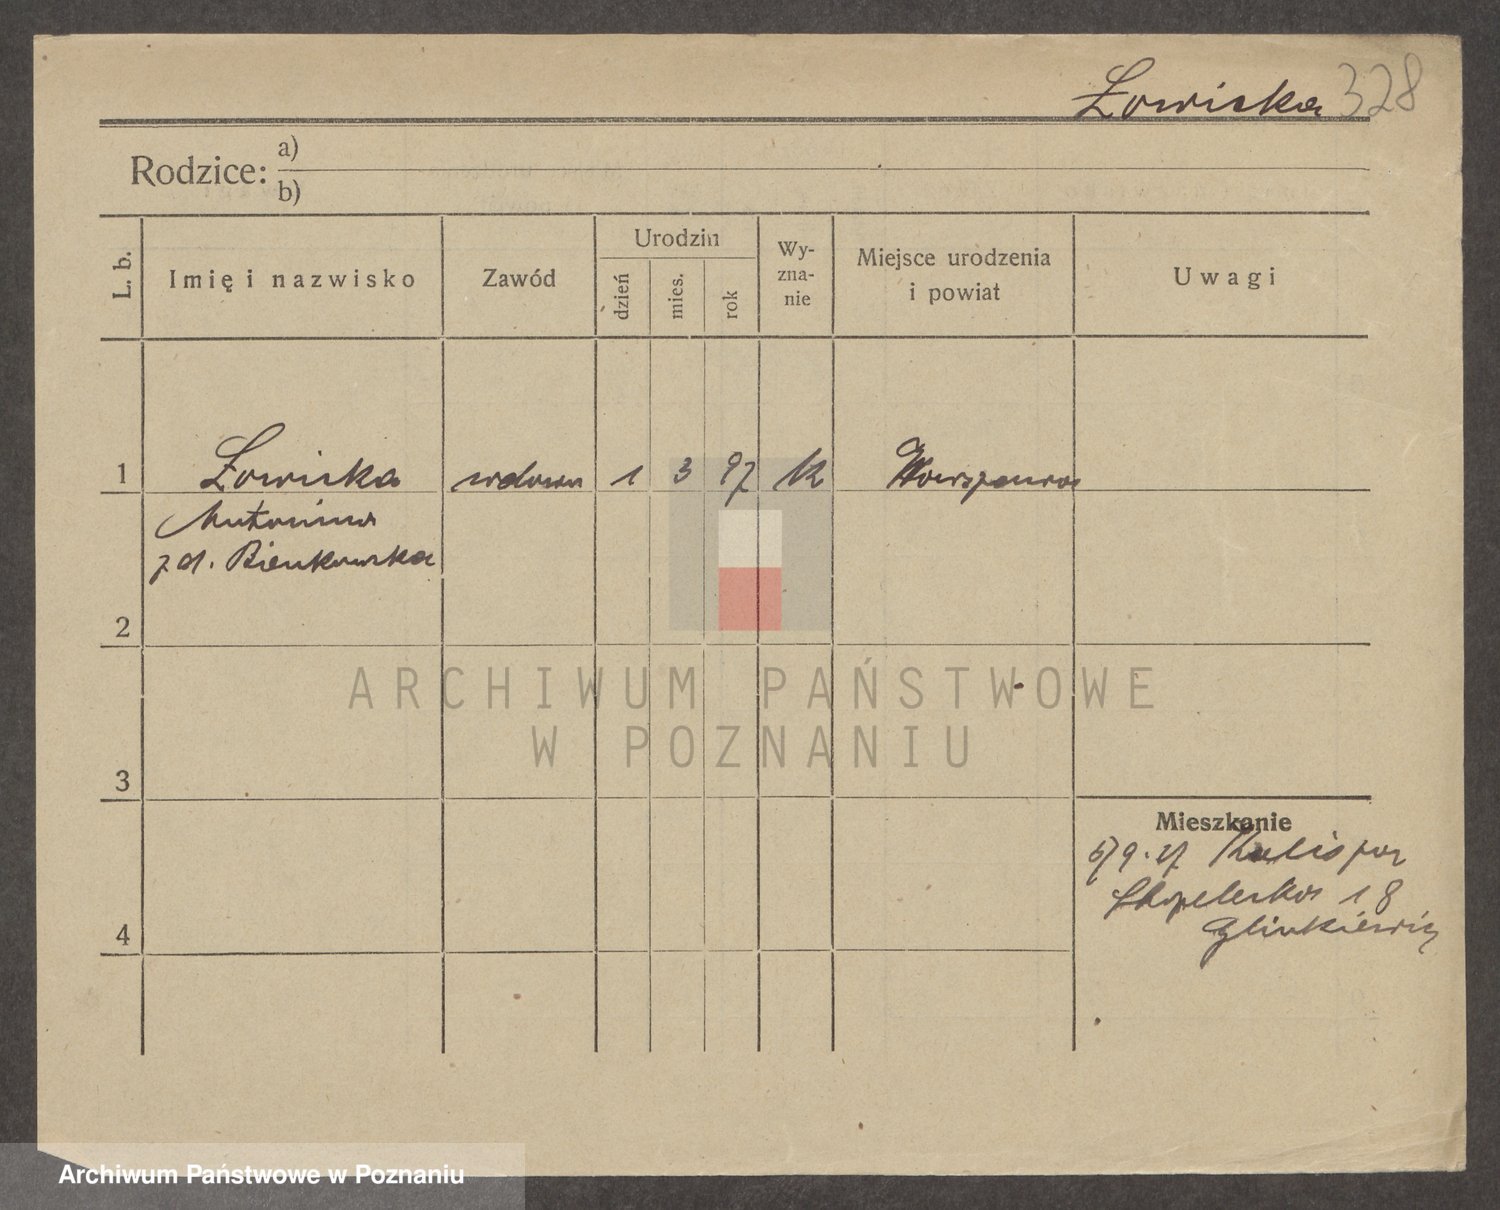 Łowicka 328
Rodzice: a)
b)
L. b.
Imię i nazwisko
Zawód
Urodzin
dzień
mies.
rok
Wy-
zna-
nie
Miejsce urodzenia
i powiat
Uwagi
1 Łowicka wdowa 1 3 97 k Warszawa
Antonina
z d. Bienkowska
2
ARCHIWUM PAŃSTWOWE
W POZNANIU
3
Mieszkanie
9.27 Kalisz
18
Glinkiewicz
4
Archiwum Państwowe w Poznaniu